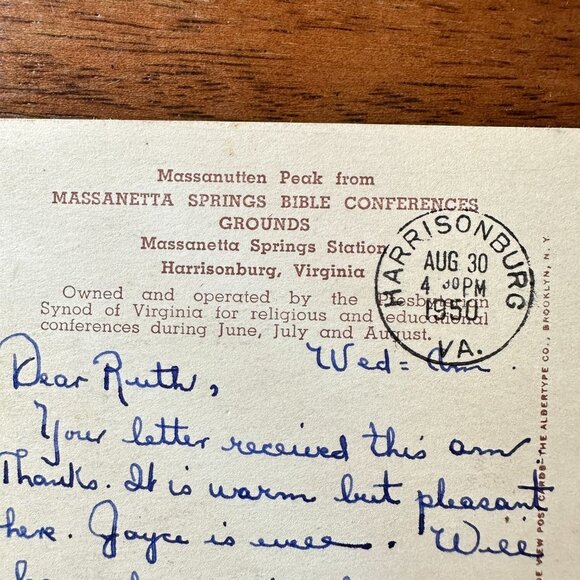 Massanutten Peak from
MASSANETTA SPRINGS BIBLE CONFERENCES
GROUNDS
Massanetta Springs Station
Harrisonburg, Virginia
Owned and operated by the Presbyterian
Synod of Virginia for religious and educational
conferences during June, July and August.
HARRISONBURG
AUG 30
4 30 PM
1950
VA.
Wed = am.
Dear Ruth,
Your letter received this am
Thanks. It is warm but pleasant
here. Joyce is well. Will
E VIEW POST CARDS–THE ALBERTYPE CO., BROOKLYN, N. Y.